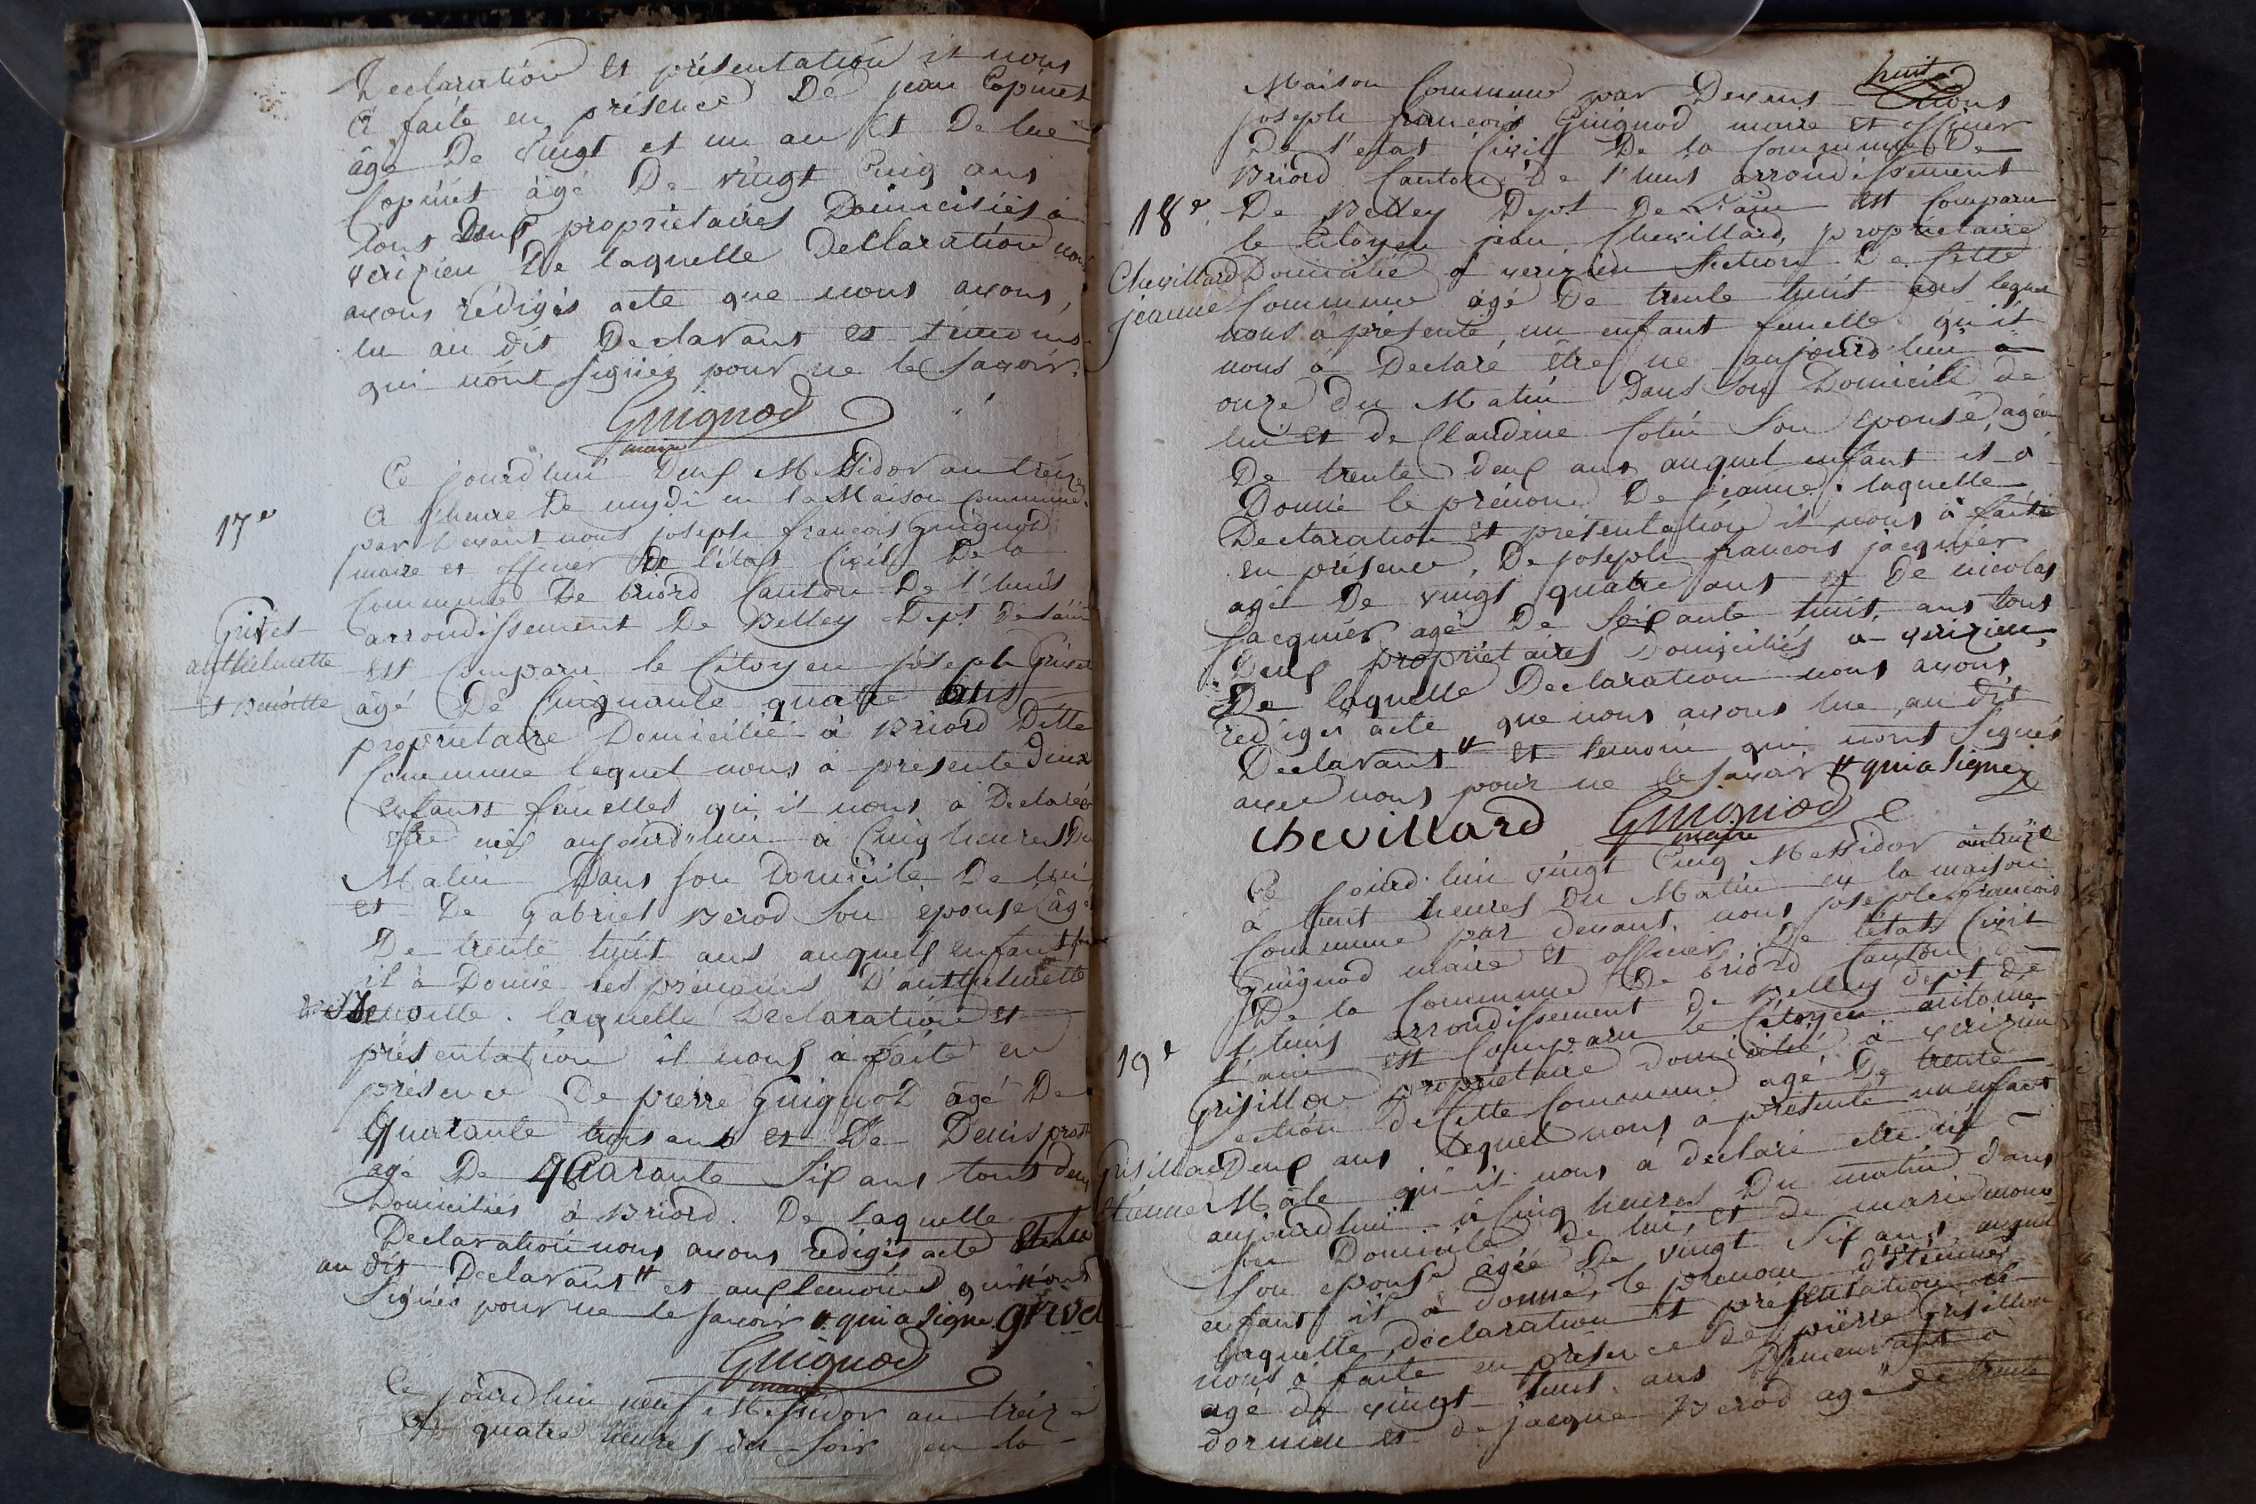 Declaration et présentation il nous
à faite en présence De jean Copinet
âgé De vingt et un an et De luc
Copinet âgé De vingt Cinq ans
tous Deux proprietaires Domiciliés à
verizieu De laquelle Declaration nous
avons rédigés acte que nous avons,
lu au dit Declarant et témoins
qui n'ont signés pour ne le savoir.
Guignod
maire
17e
Ce jourd'hui Deux Messidor an treize
à l'heure De mydi en la Maison Commune
par Devant nous joseph francois Guignod
maire et officier De l'état Civil De la
Commune De briord Canton De l'huis
arrondissement De Belley Dept De l'ain
Grivet
anthelmette
et Benoitte
est comparu le Citoyen joseph Grivet
âgé De Cinquante quatre ans
proprietaire Domicilié à Briord Ditte
Commune lequel nous à présenté Deux
enfants femelles qu'il nous à Declarés
être nés aujourd'hui à Cinq heures Du
Matin Dans son Domicile De lui
et De Gabriel Berod son épouse âgée
De trente huit ans auquels enfants
il à Donné les prénoms D'anthelmette
et Benoitte. laquelle Declaration et
présentation il nous à faite en
présence De pierre Guignod âgé De
Quarante trois ans et De Denis
âgé De quarante Six ans tous deux
Domiciliés à Briord. De laquelle
Declaration nous avons rédigés acte et lu
au dit Declarant # et aux témoins qui n'ont
Signés pour ne le savoir # qui a signé Grivet
Guignod
maire
Ce jourd'hui neuf Messidor an treize
à quatre heures du soir en la
huit
Maison Commune par Devant nous
joseph francois Guignod maire et officier
De l'etat Civil De la Commune De
Briord Canton De l'huis arrondissement
18e
De Belley Dept De l'ain est Comparu
le Citoyen jean Chevillard, propriétaire
Chevillard
jeanne
Domicilié à verizieu Section De Cette
Commune âgé De trente huit ans lequel
nous à présenté, un enfant femelle qu'il
nous à Declaré être né aujourd'hui à
onze du Matin Dans son Domicile De
lui et de Claudine Cotin Son épouse, agée
De trente deux ans auquel enfant il à
Donné le prénom De jeanne. laquelle
Declaration et présentation il nous à faite
en présence, De joseph francois jacquier
agé De vingt quatre ans et De nicolas
jacquier agé De soixante huit ans tous
Deux propriétaires Domiciliés à verizieu,
De laquelle Declaration nous avons
rediger acte que nous avons lue au dit
Declarant # et temoin qui n'ont Signés
avec nous pour ne le savoir # qui a signé
chevillard Guignod
maire
Ce jourd'hui vingt Cinq Messidor an treize
à huit heures Du Matin en la maison
Commune par devant nous joseph francois
Guignod maire et officier De l'état Civil
De la Commune De briord Canton de
l'huis arrondissement de Belley dept de
19e
l'ain est Comparu le Citoyen antoine
Grisillon propriétaire domicilié à verizieu
section De Cette Commune agé De trente
Grisillon
Etienne
Deux ans lequel nous a présenté un enfant
Mâle qu'il nous a declaré être né
aujourdhui à Cinq heures Du matin dans
son Domicile de lui, et de marie
Son epouse agée De vingt Six ans auquel
enfant il à donné, le prenom d'Etienne
laquelle déclaration et présentation il
nous à faite en présence de pierre Grisillon
agé de vingt huit ans Demeurant à
dornieu et de jacque Berod agé de trente